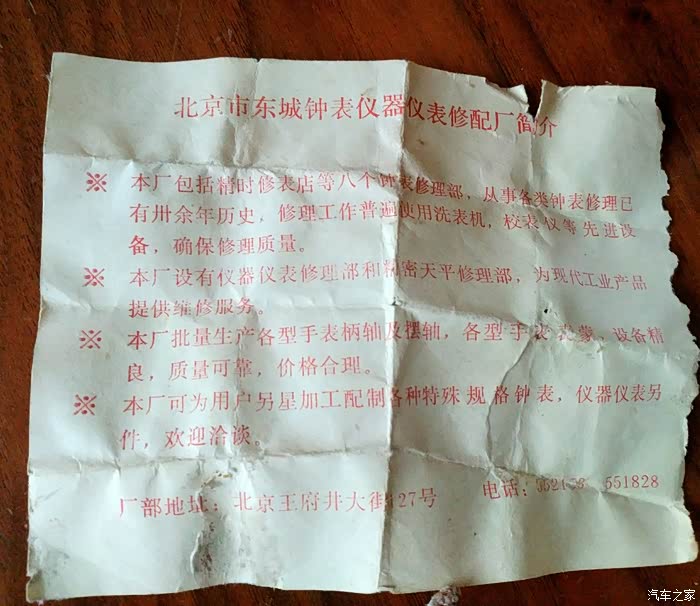 北京市东城钟表仪器仪表修配厂简介
※ 本厂包括精时修表店等八个钟表修理部，从事各类钟表修理已
有卅余年历史，修理工作普遍使用洗表机，校表仪等先进设
备，确保修理质量。
※ 本厂设有仪器仪表修理部和精密天平修理部，为现代工业产品
提供维修服务。
※ 本厂批量生产各型手表柄轴及摆轴，各型手表表蒙，设备精
良，质量可靠，价格合理。
※ 本厂可为用户另星加工配制各种特殊规格钟表，仪器仪表另
件，欢迎洽谈。
厂部地址：北京王府井大街127号 电话： 551828
汽车之家